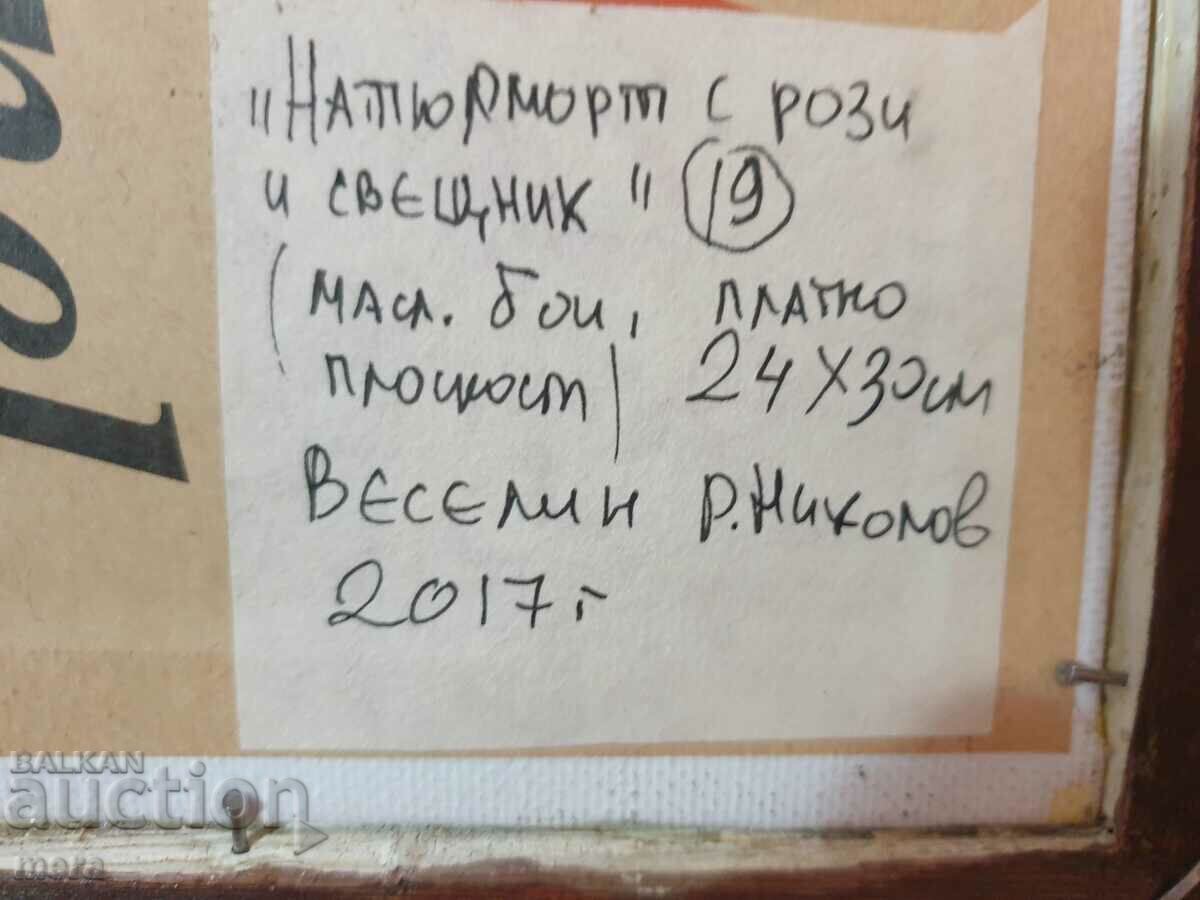 "НАТЮРМОРТ С РОЗИ
И СВЕЩНИК" 19
(МАСЛ. бои, ПЛАТНО
ПЛОСКОСТ) 24 X 30 см
ВЕСЕЛИН Р. НИКОЛОВ
2017 г
BALKAN
auction
mera